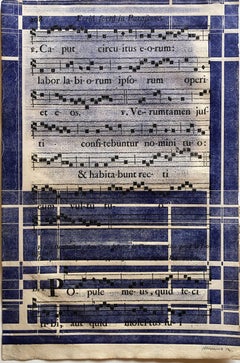 Feria Sexta in Parasceve.
v. Ca- put circu itus e-o-rum:
labor la-bi-o-rum ipſo- rum operi
et e os. v. Ve-rumtamen juſ-
ti confi-tebuntur no-mini tu o:
& habita bunt rec- ti
cum vul-tu tu- o.
POpule me-us, quid fe-ci
ti-bi, aut quid